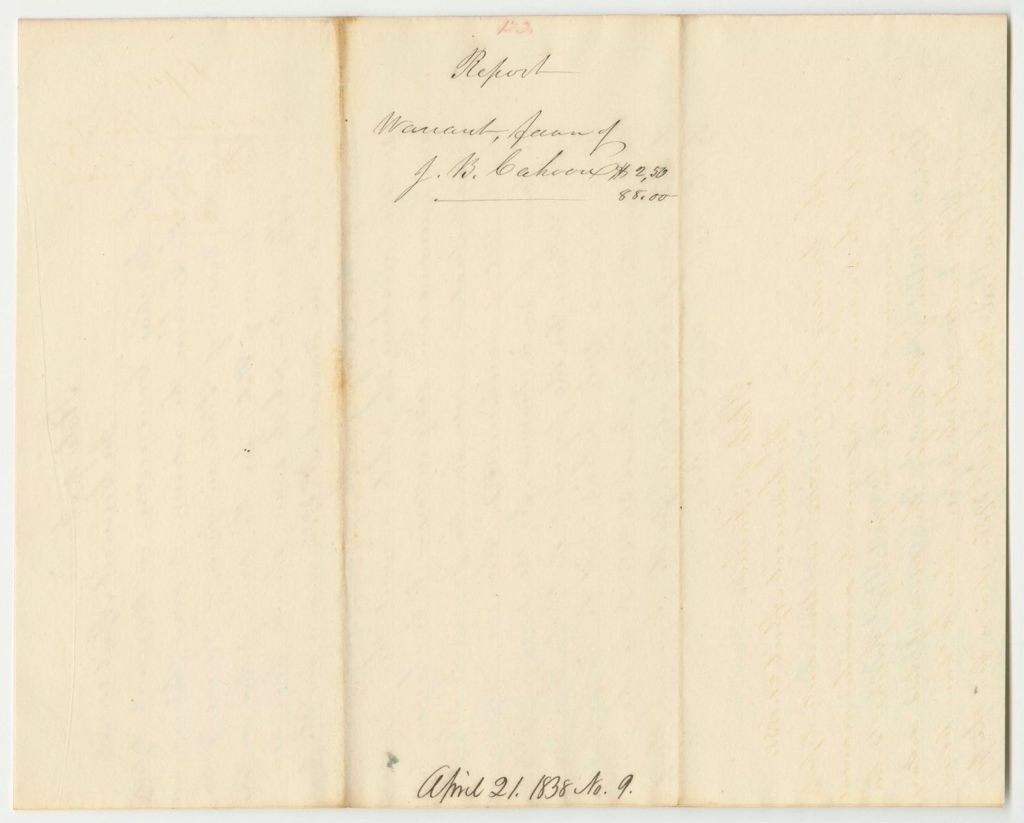 Report
Warrant, favor of
J. B. Cahoon $ 2,50
88.00
April 21. 1838 No. 9.